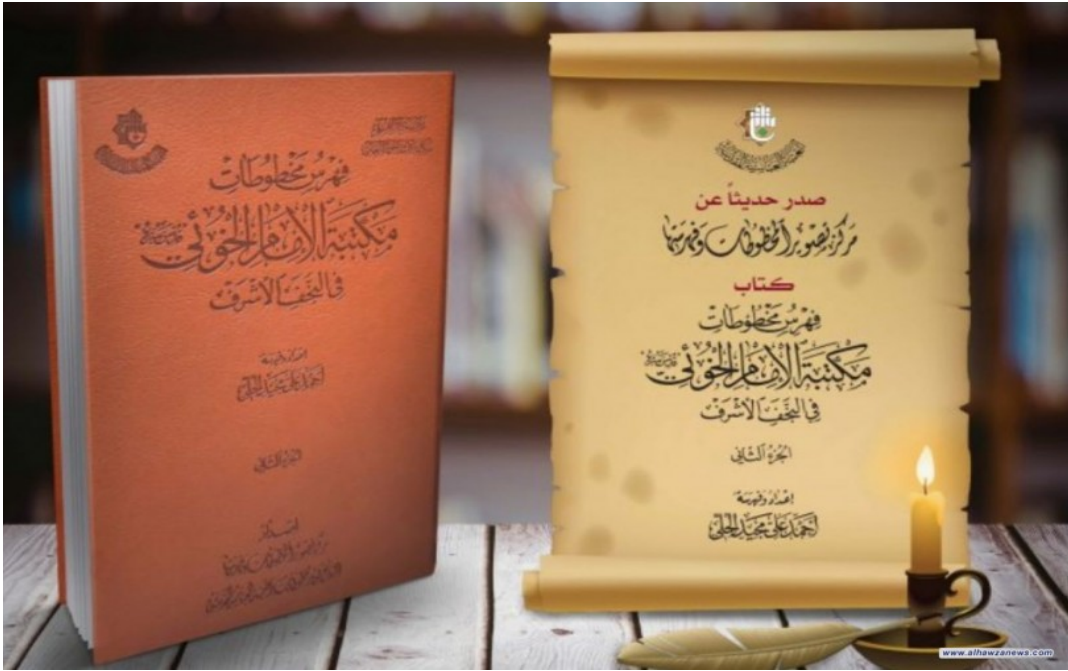 فهرس مخطوطات
مكتبة الإمام الخوئي
في النجف الأشرف
إعداد وفهرسة
أحمد علي مجيد الحلي
الجزء الثاني
صدر حديثاً عن
مركز تصوير المخطوطات وفهرستها
كتاب
فهرس مخطوطات
مكتبة الإمام الخوئي
في النجف الأشرف
الجزء الثاني
إعداد وفهرسة
أحمد علي مجيد الحلي
www.alhawzanews.com